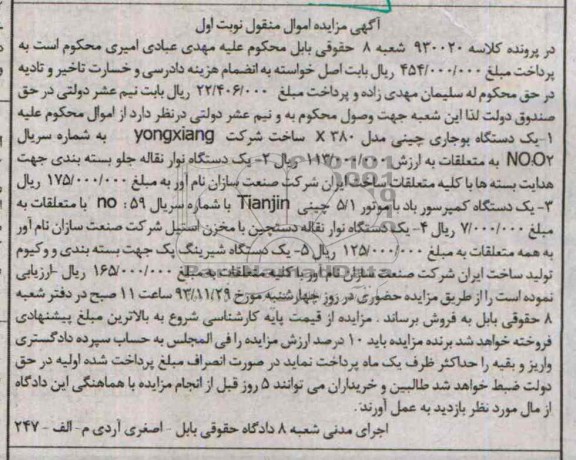 آگهی مزایده اموال منقول نوبت اول
در پرونده کلاسه ۹۳۰۰۲۰ شعبه ۸ حقوقی بابل محکوم علیه مهدی عبادی امیری محکوم است به
پرداخت مبلغ ۴۵۴/۰۰۰/۰۰۰ ریال بابت اصل خواسته به انضمام هزینه دادرسی و خسارت تاخیر و تادیه
در حق محکوم له سلیمان مهدی زاده و پرداخت مبلغ ۲۲/۴۰۶/۰۰۰ ریال بابت نیم عشر دولتی در حق
صندوق دولت لذا این شعبه جهت وصول محکوم به و نیم عشر دولتی درنظر دارد از اموال محکوم علیه
۱-یک دستگاه بوجاری چینی مدل X ۳۸۰ ساخت شرکت yongxiang به شماره سریال
NO:O۲ به متعلقات به ارزش ۱۱۳/۰۰۰/۰۰۰ ریال ۲- یک دستگاه نوار نقاله جلو بسته بندی جهت
هدایت بسته ها با کلیه متعلقات ساخت ایران شرکت صنعت سازان نام آور به مبلغ ۱۷۵/۰۰۰/۰۰۰ ریال
۳- یک دستگاه کمپرسور باد با موتور ۵/۱ چینی Tianjin با شماره سریال ۵۹ : no با متعلقات به
مبلغ ۷/۰۰۰/۰۰۰ ریال ۴- یک دستگاه نوار نقاله دستچین با مخزن استیل شرکت صنعت سازان نام آور
به همه متعلقات به مبلغ ۱۲۵/۰۰۰/۰۰۰ ریال ۵- یک دستگاه شیرینگ پک جهت بسته بندی و وکیوم
تولید ساخت ایران شرکت صنعت سازان نام آور با کلیه متعلقات به مبلغ ۱۶۵/۰۰۰/۰۰۰ ریال -ارزیابی
نموده است را از طریق مزایده حضوری در روز چهارشنبه مورخ ۹۳/۱۱/۲۹ ساعت ۱۱ صبح در دفتر شعبه
۸ حقوقی بابل به فروش برساند . مزایده از قیمت پایه کارشناسی شروع به بالاترین مبلغ پیشنهادی
فروخته خواهد شد برنده مزایده باید ۱۰ درصد ارزش مزایده را فی المجلس به حساب سپرده دادگستری
واریز و بقیه را حداکثر ظرف یک ماه پرداخت نماید در صورت انصراف مبلغ پرداخت شده اولیه در حق
دولت ضبط خواهد شد طالبین و خریداران می توانند ۵ روز قبل از انجام مزایده با هماهنگی این دادگاه
از مال مورد نظر بازدید به عمل آورند.
اجرای مدنی شعبه ۸ دادگاه حقوقی بابل - اصغری آردی م- الف - ۲۴۷